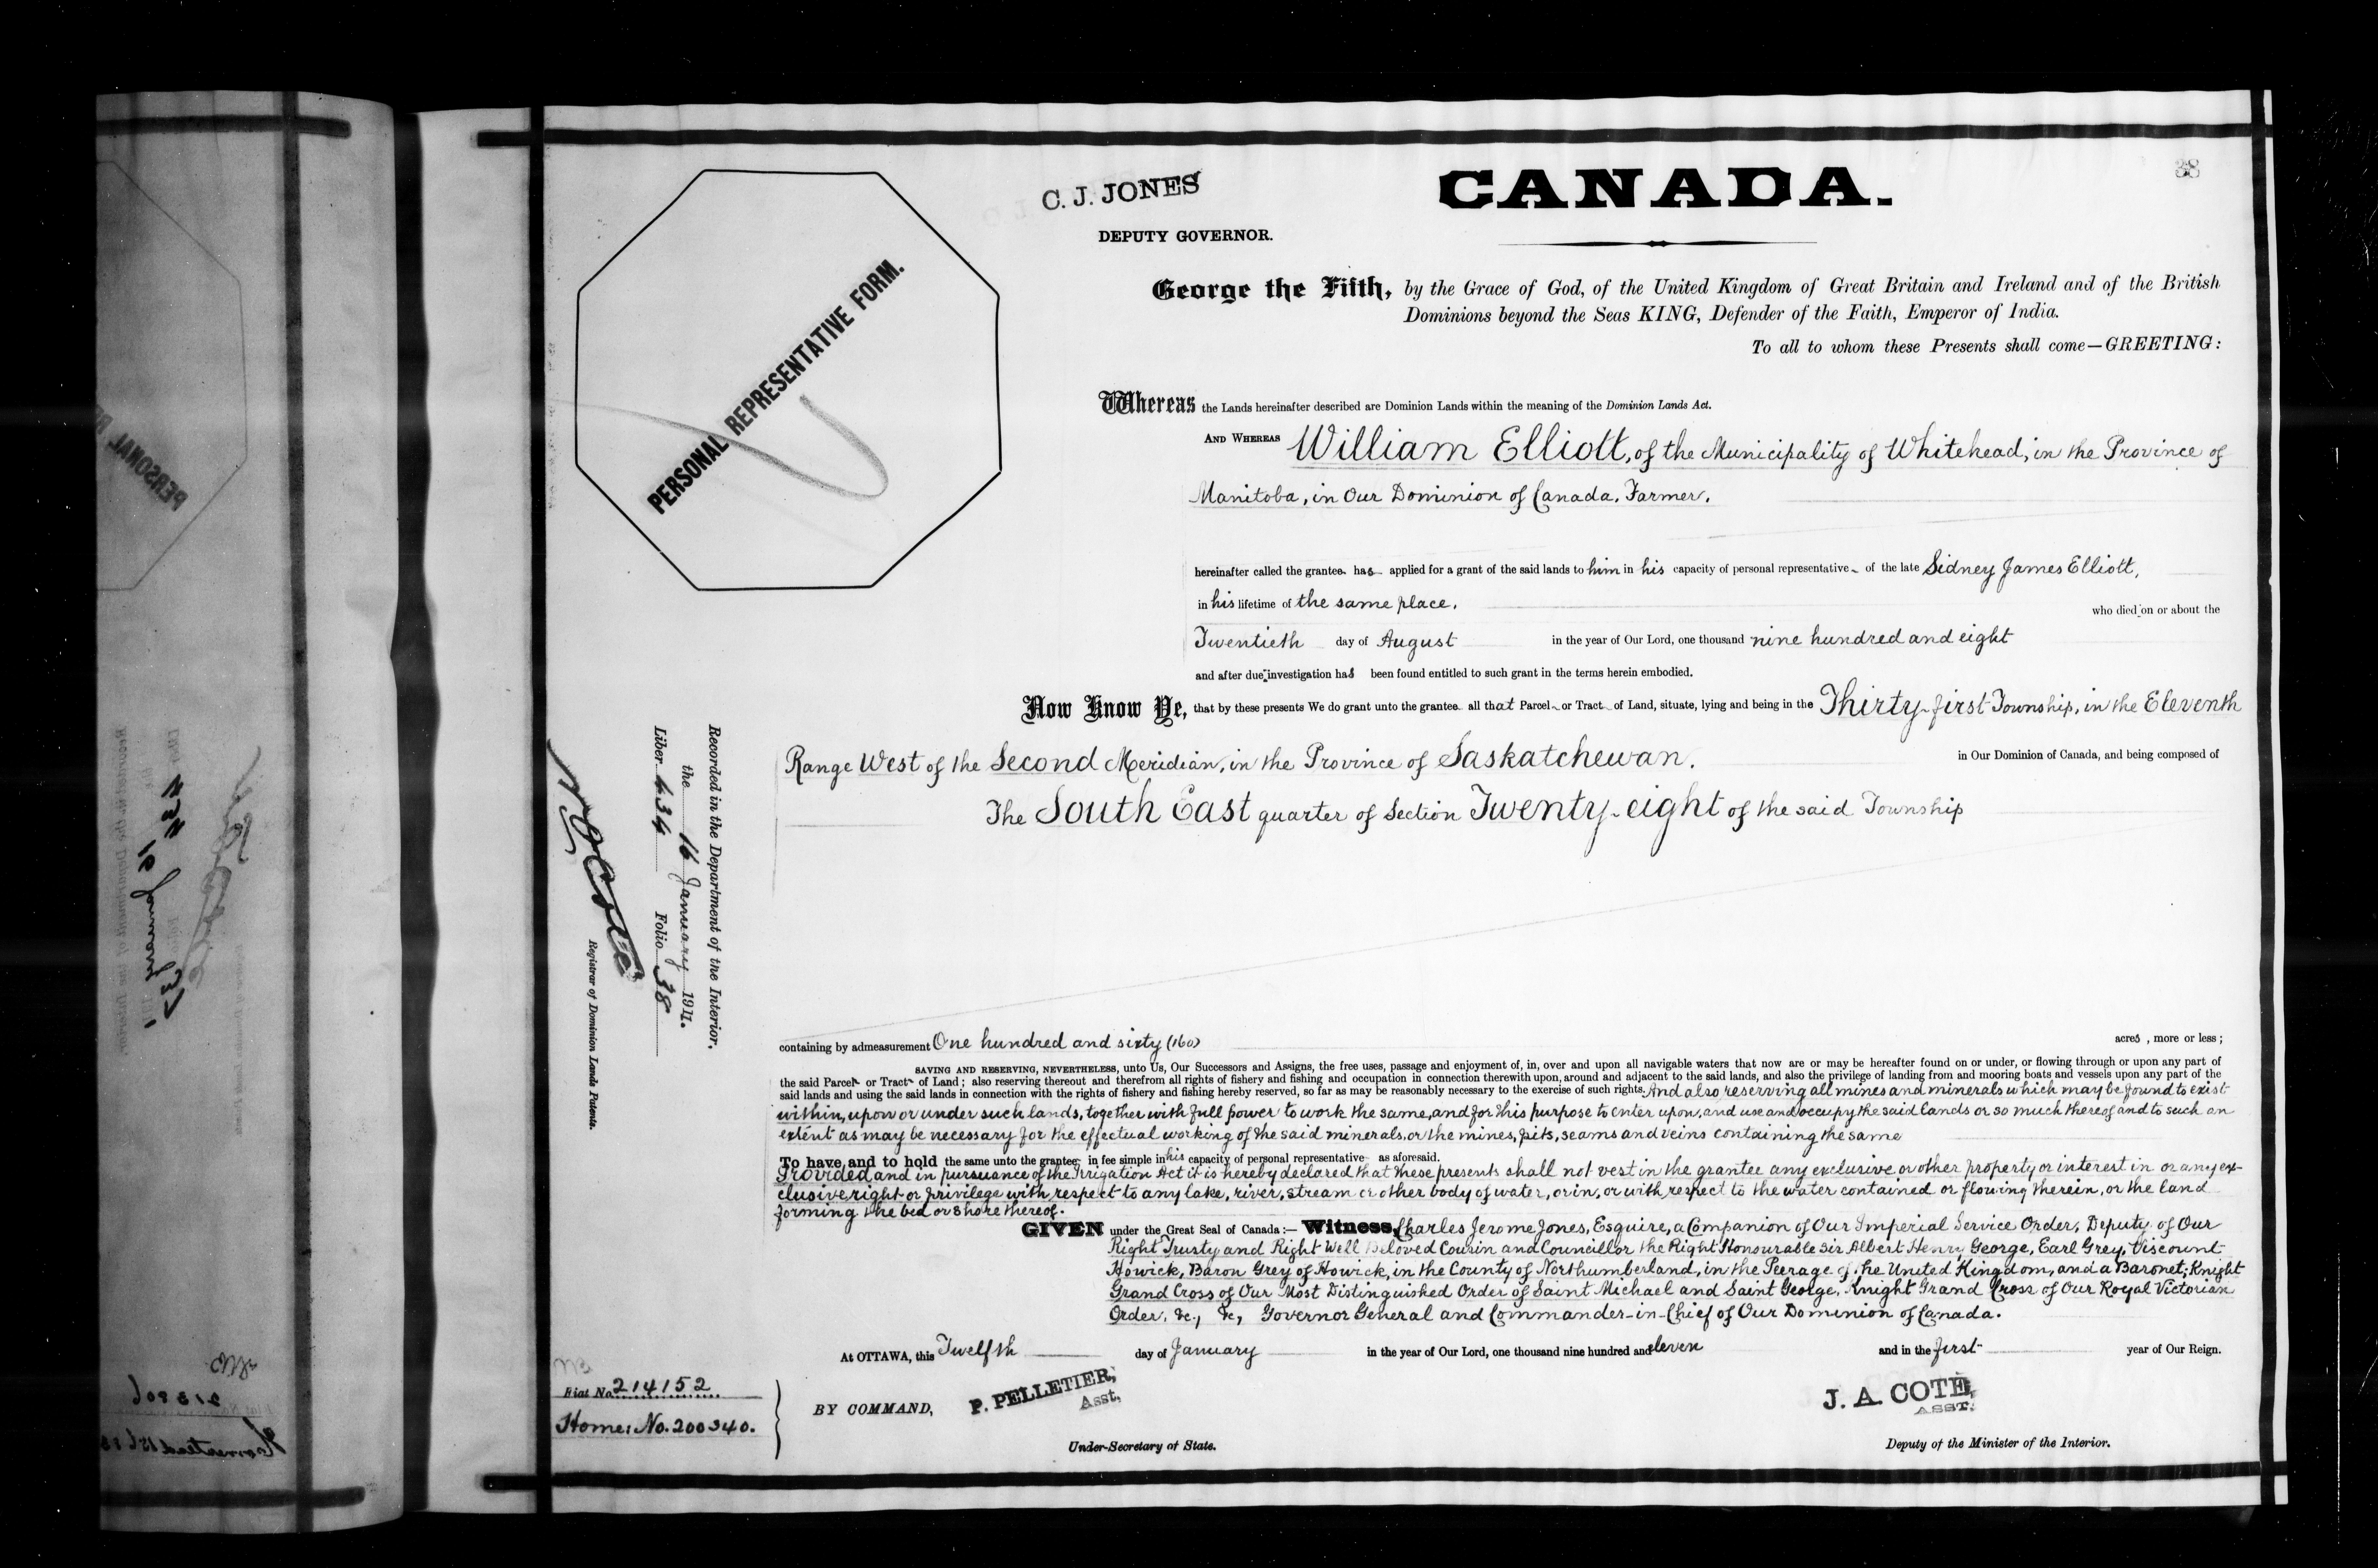 38
C. J. JONES
CANADA.
DEPUTY GOVERNOR.
PERSONAL REPRESENTATIVE FORM.
George the Fifth, by the Grace of God, of the United Kingdom of Great Britain and Ireland and of the British
Dominions beyond the Seas KING, Defender of the Faith, Emperor of India.
To all to whom these Presents shall come—GREETING:
Whereas the Lands hereinafter described are Dominion Lands within the meaning of the Dominion Lands Act.
AND WHEREAS William Elliott, of the Municipality of Whitehead, in the Province of
Manitoba, in Our Dominion of Canada, Farmer,
hereinafter called the grantee has applied for a grant of the said lands to him in his capacity of personal representative of the late Sidney James Elliott,
in his lifetime of the same place,
who died on or about the
Twentieth day of August in the year of Our Lord, one thousand nine hundred and eight
and after due investigation has been found entitled to such grant in the terms herein embodied.
Now Know Ye, that by these presents We do grant unto the grantee all that Parcel or Tract of Land, situate, lying and being in the Thirty-first Township, in the Eleventh
Range West of the Second Meridian, in the Province of Saskatchewan. in Our Dominion of Canada, and being composed of
The South East quarter of Section Twenty-eight of the said Township
Recorded in the Department of the Interior,
the 16 January 1911.
Liber 434 Folio 38
N O Coté
Registrar of Dominion Lands Patents.
containing by admeasurement One hundred and sixty (160) acres, more or less;
SAVING AND RESERVING, NEVERTHELESS, unto Us, Our Successors and Assigns, the free uses, passage and enjoyment of, in, over and upon all navigable waters that now are or may be hereafter found on or under, or flowing through or upon any part of
the said Parcel or Tract of Land; also reserving thereout and therefrom all rights of fishery and fishing and occupation in connection therewith upon, around and adjacent to the said lands, and also the privilege of landing from and mooring boats and vessels upon any part of the
said lands and using the said lands in connection with the rights of fishery and fishing hereby reserved, so far as may be reasonably necessary to the exercise of such rights. And also reserving all mines and minerals which may be found to exist
within, upon or under such lands, together with full power to work the same, and for this purpose to enter upon, and use and occupy the said lands or so much thereof and to such an
extent as may be necessary for the effectual working of the said minerals, or the mines, pits, seams and veins containing the same
To have and to hold the same unto the grantee in fee simple in his capacity of personal representative as aforesaid.
Provided, and in pursuance of the Irrigation Act it is hereby declared that these presents shall not vest in the grantee any exclusive or other property or interest in or any ex-
clusive right or privilege with respect to any lake, river, stream or other body of water, or in, or with respect to the water contained or flowing therein, or the land
forming the bed or shore thereof.
GIVEN under the Great Seal of Canada:— Witness, Charles Jerome Jones, Esquire, a Companion of Our Imperial Service Order, Deputy of Our
Right Trusty and Right Well Beloved Cousin and Councillor the Right Honourable Sir Albert Henry George, Earl Grey, Viscount
Howick, Baron Grey of Howick, in the County of Northumberland, in the Peerage of the United Kingdom, and a Baronet; Knight
Grand Cross of Our Most Distinguished Order of Saint Michael and Saint George, Knight Grand Cross of Our Royal Victorian
Order, &c., &c, Governor General and Commander-in-Chief of Our Dominion of Canada.
At OTTAWA, this Twelfth day of January in the year of Our Lord, one thousand nine hundred and eleven and in the first year of Our Reign.
Fiat No. 214152
Home: No. 200340.
BY COMMAND,
P. PELLETIER,
Asst,
Under-Secretary of State.
J. A. COTÉ,
ASST.
Deputy of the Minister of the Interior.